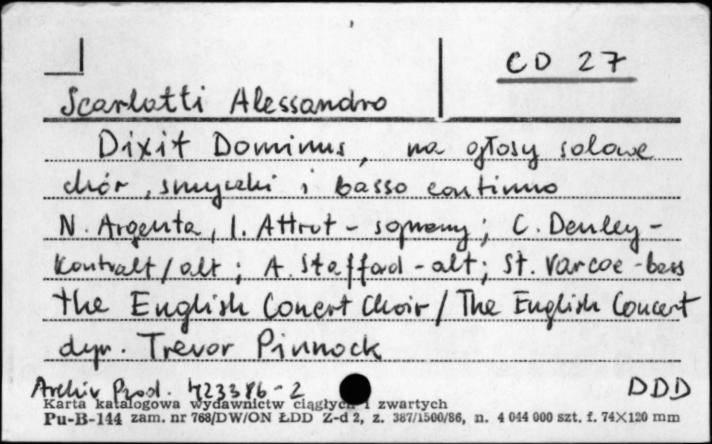 CD 27
Scarlatti Alessandro
Dixit Dominus, na głosy solowe
chór, smyczki i basso continuo
N. Argenta, I. Attrot - soprany; C. Denley -
kontralt/alt; A. Stafford - alt; St. Varcoe - bass
the English Concert Choir / The English Concert
dyr. Trevor Pinnock
Archiv Prod. 423386-2 DDD
Karta katalogowa wydawnictw ciągłych i zwartych
Pu-B-144 zam. nr 768/DW/ON ŁDD Z-d 2, z. 387/1500/86, n. 4 044 000 szt. f. 74×120 mm